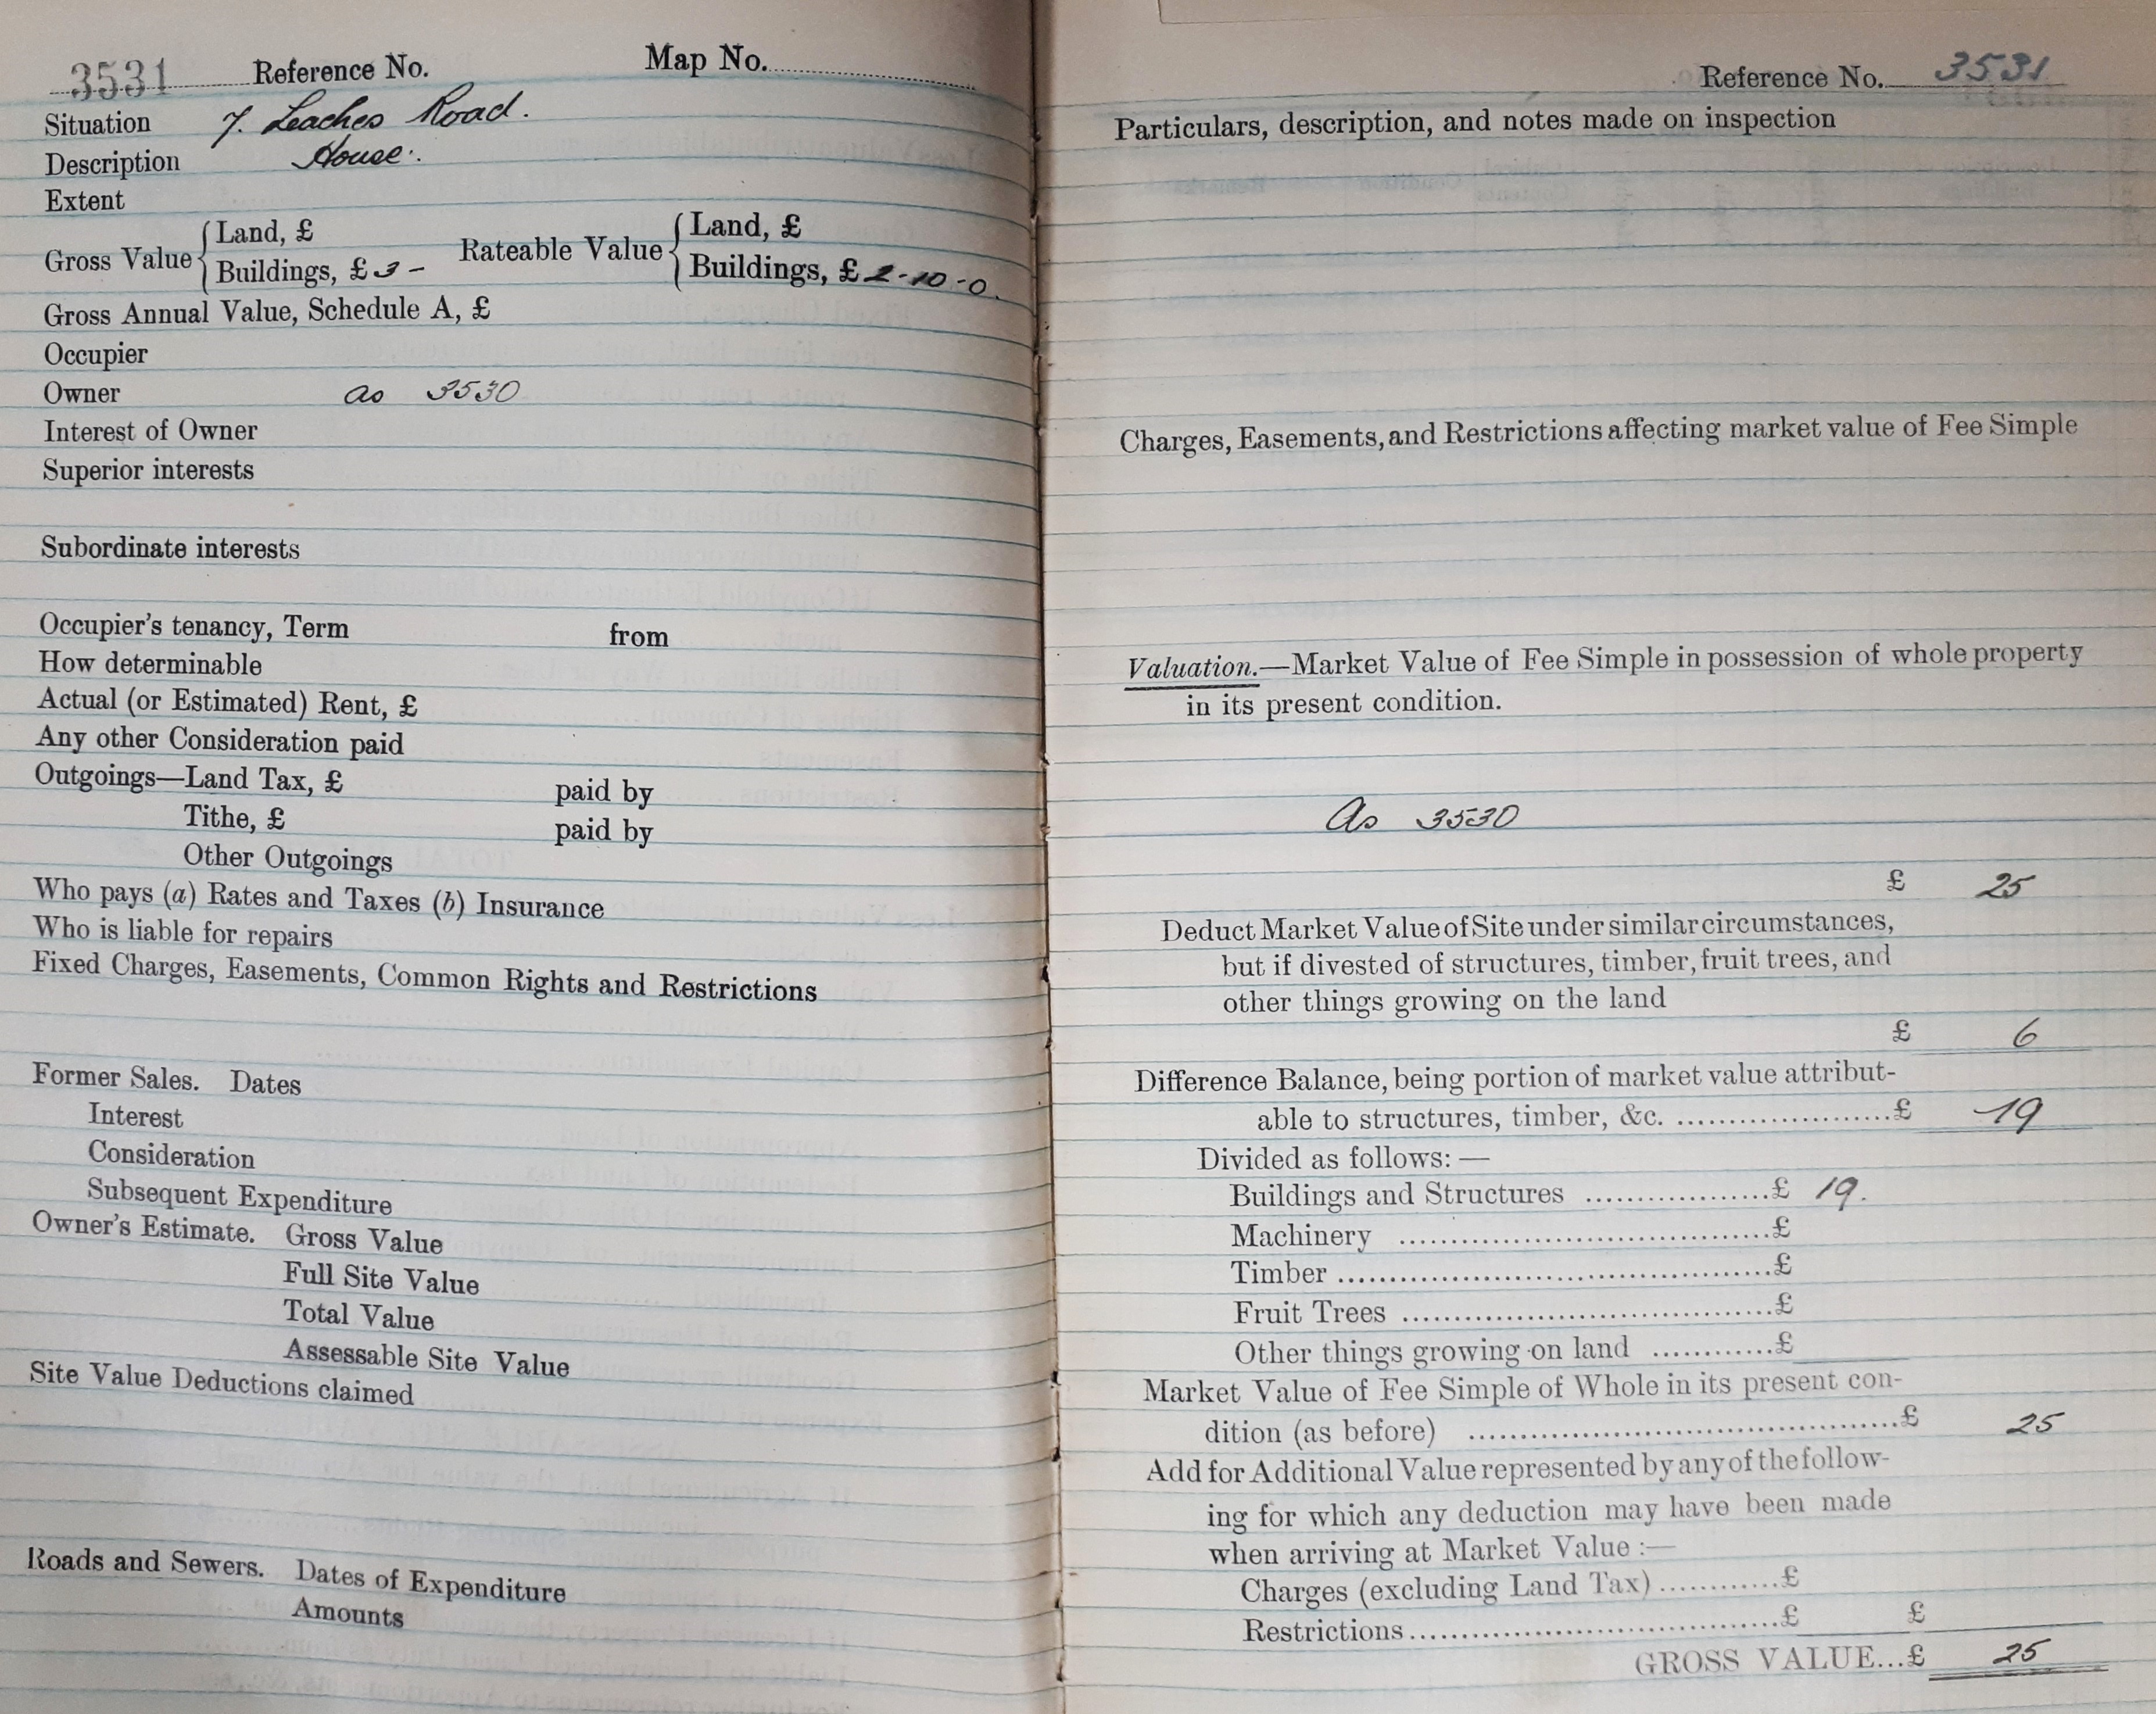 3531 Reference No. Map No.
Situation 7. Leaches Road.
Description House.
Extent
Gross Value { Land, £ Rateable Value { Land, £
Buildings, £ 3 - Buildings, £ 2-10-0.
Gross Annual Value, Schedule A, £
Occupier
Owner as 3530
Interest of Owner
Superior interests
Subordinate interests
Occupier's tenancy, Term from
How determinable
Actual (or Estimated) Rent, £
Any other Consideration paid
Outgoings—Land Tax, £ paid by
Tithe, £ paid by
Other Outgoings
Who pays (a) Rates and Taxes (b) Insurance
Who is liable for repairs
Fixed Charges, Easements, Common Rights and Restrictions
Former Sales. Dates
Interest
Consideration
Subsequent Expenditure
Owner's Estimate. Gross Value
Full Site Value
Total Value
Assessable Site Value
Site Value Deductions claimed
Roads and Sewers. Dates of Expenditure
Amounts
Reference No. 3531
Particulars, description, and notes made on inspection
Charges, Easements, and Restrictions affecting market value of Fee Simple
Valuation.—Market Value of Fee Simple in possession of whole property
in its present condition.
As 3530
£ 25
Deduct Market Value of Site under similar circumstances,
but if divested of structures, timber, fruit trees, and
other things growing on the land
£ 6
Difference Balance, being portion of market value attribut-
able to structures, timber, &c. ....................£ 19
Divided as follows:—
Buildings and Structures ..................£ 19.
Machinery ....................................£
Timber ..........................................£
Fruit Trees ....................................£
Other things growing on land ............£
Market Value of Fee Simple of Whole in its present con-
dition (as before) ..........................................£ 25
Add for Additional Value represented by any of the follow-
ing for which any deduction may have been made
when arriving at Market Value :—
Charges (excluding Land Tax) ............£
Restrictions ....................................£ £
GROSS VALUE...£ 25